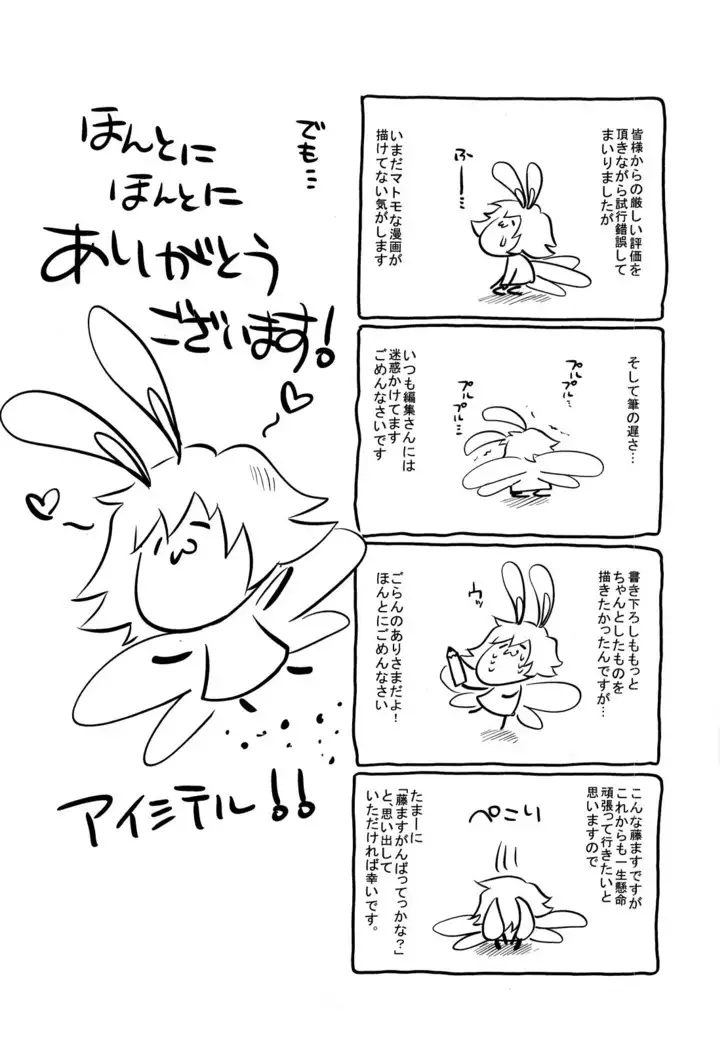 皆様からの厳しい評価を
頂きながら試行錯誤して
まいりましたが
ふー…
いまだマトモな漫画が
描けてない気がします
そして筆の遅さ…
プルプル…
プルプル…
いつも編集さんには
迷惑かけてます
ごめんなさいです
書き下ろしももっと
ちゃんとしたものを
描きたかったんですが…
ウッ
ごらんのありさまだよ！
ほんとにごめんなさい
こんな藤ますですが
これからも一生懸命
頑張って行きたいと
思いますので
ぺこり
たまーに
「藤ますがんばってっかな？」
と、思い出して
いただければ幸いです。
でも…
ほんとに
ほんとに
ありがとう
ございます！
アイシテル！！